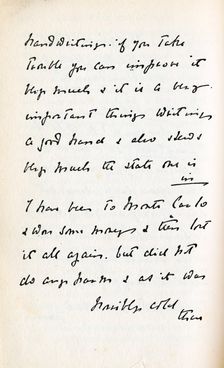 handwriting. if you take
trouble you can improve it
very much & it is a very
important thing writing
a good hand & also shews
very much the state one is
in
I have been to Monte Carlo
& won some money & then lost
it all again. but did not
do any harm & as it was
horribly cold
there